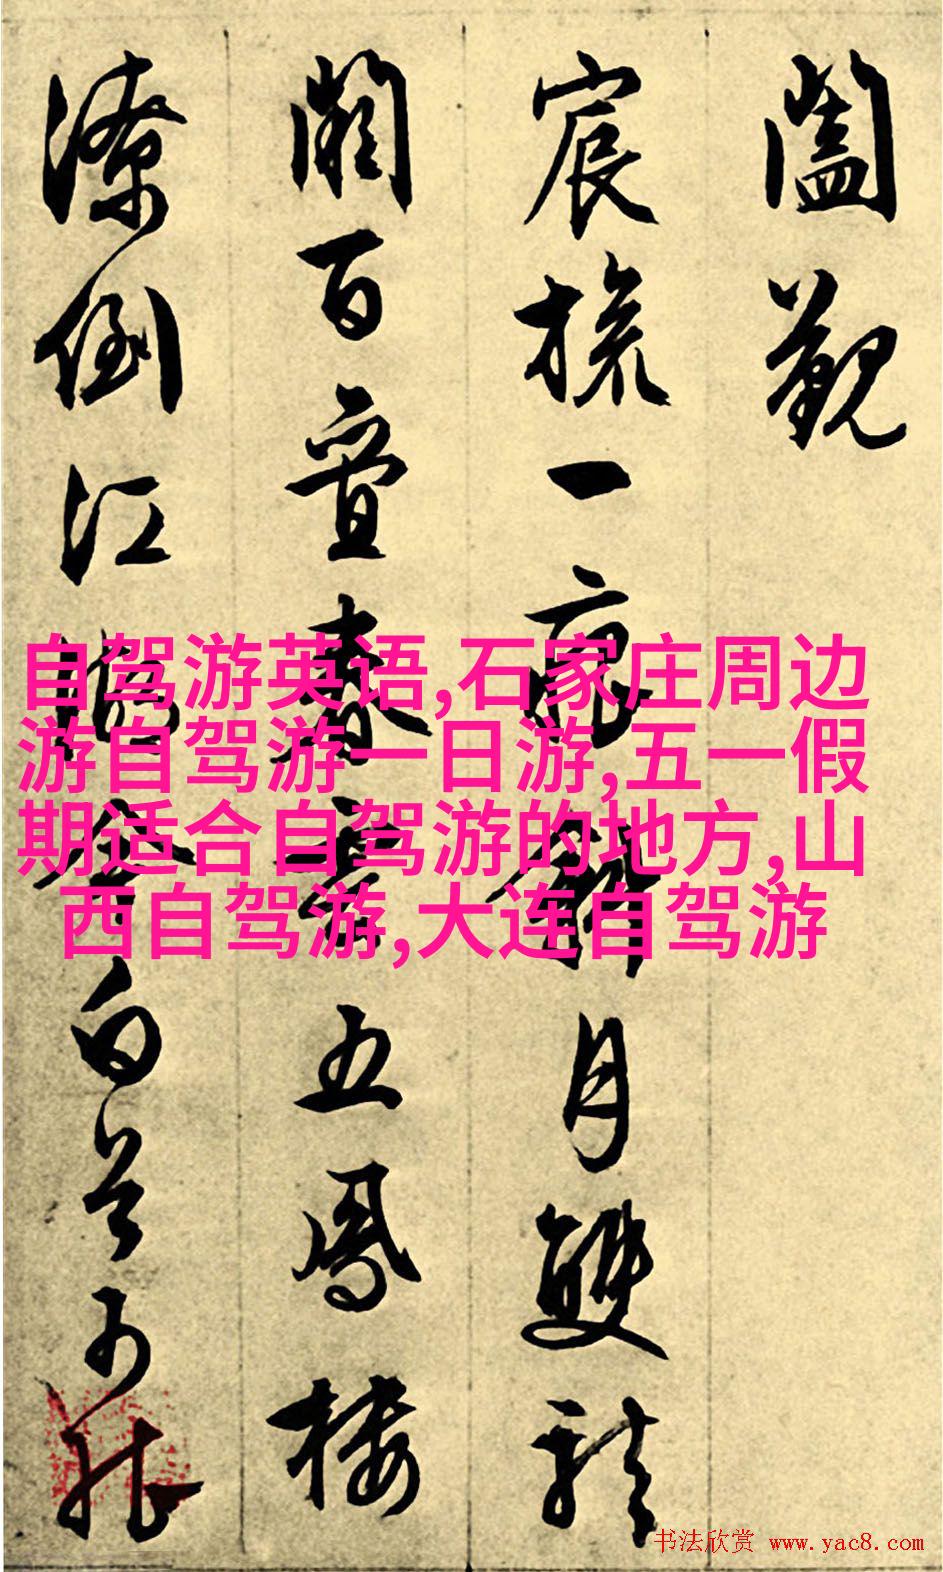 闔觀
宸旒一痕斜月雙龍
闕百疊春雲五鳳樓
潦倒江湖今白首可能
自驾游英语,石家庄周边
游自驾游一日游,五一假
期适合自驾游的地方,山
西自驾游,大连自驾游
书法欣赏 www.yac8.com